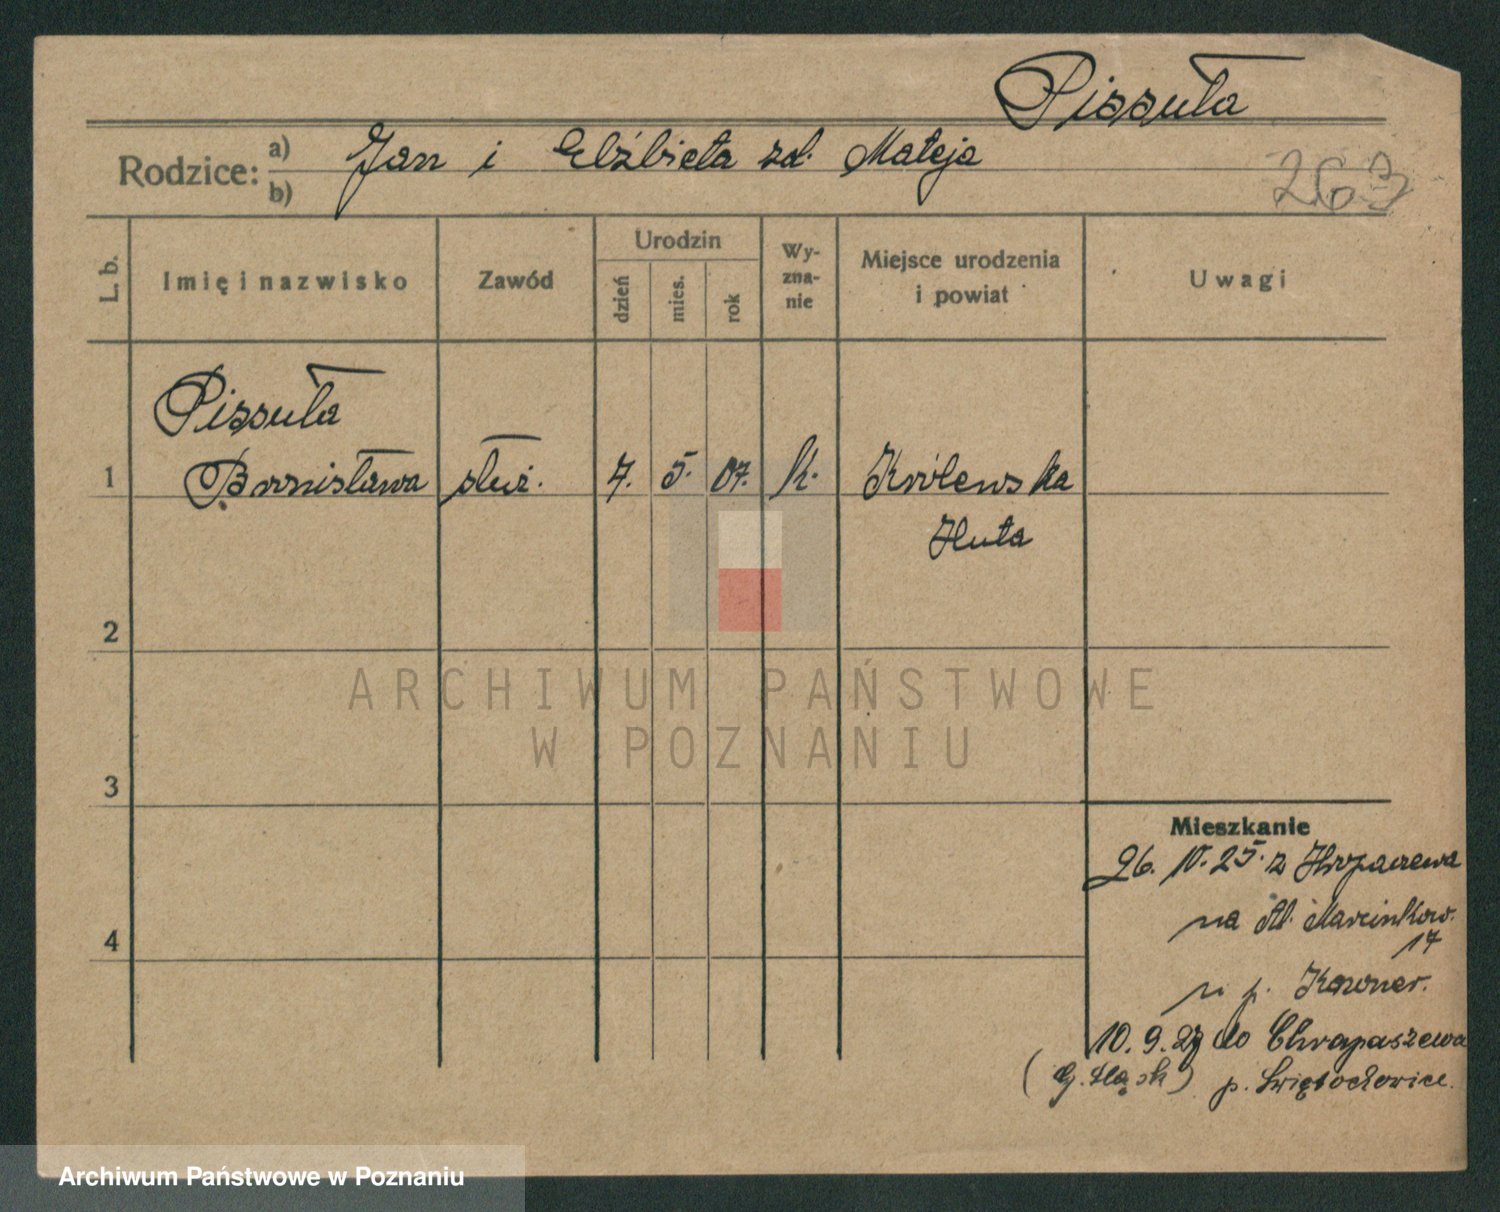 Pissuła
Rodzice: a) Jan i Elżbieta zd. Mateja
b)
263
L. b.
Imię i nazwisko
Zawód
Urodzin
dzień
mies.
rok
Wy-
zna-
nie
Miejsce urodzenia
i powiat
Uwagi
Pissuła
1 Bronisława służ. 7. 5. 07. k. Królewska
Huta
2
3
4
ARCHIWUM PAŃSTWOWE
W POZNANIU
Mieszkanie
26. 10. 25. z
na Al. Marcinkow.
17
u p.
10. 9. 27 do Chrapaszewa
(G. Śląsk) p. Świętochowice.
Archiwum Państwowe w Poznaniu